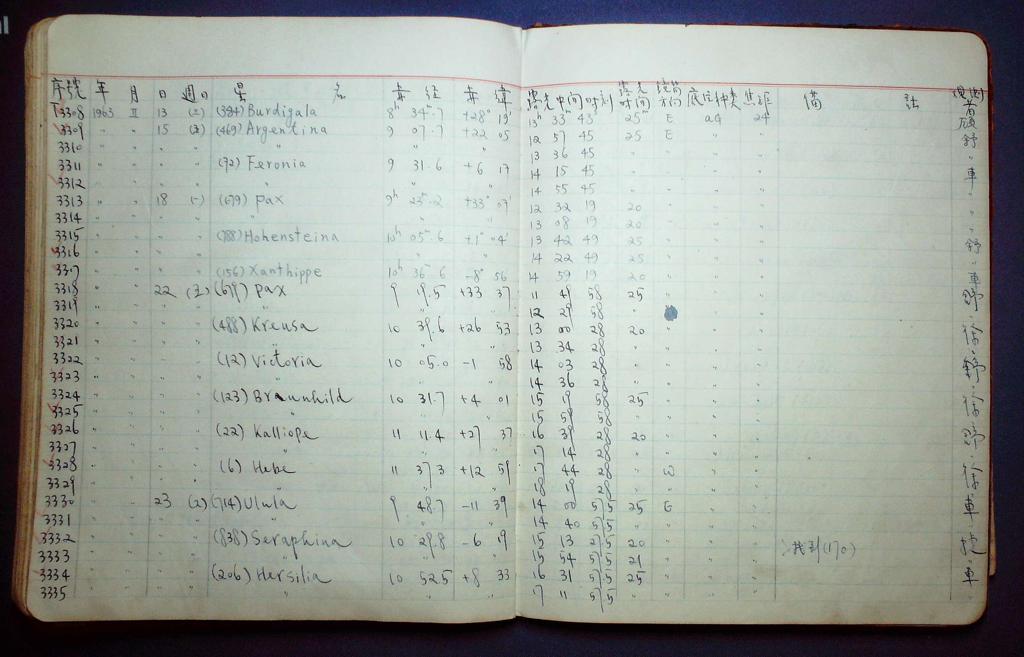 序號 年 月 日 週日 星 名 赤 經 赤 緯 露光中間時刻 露光時間 鏡筒方向 底片種類 焦距 備 註
3308 1963 II 13 (三) (384) Burdigala 8h 34.7 +28° 19' 13h 33 43 25 E a4 24
3309 " " 15 (469) Argentina 9 07.7 +22 05 12 57 45 25 E " " 舒
3310 " " " " " 13 36 45 " " " "
3311 " " " " (72) Feronia 9 31.6 +6 17 14 15 45 " " " " 車
3312 " " " " " 14 55 45 " " " " "
3313 " " 18 (一) (679) Pax 9h 25.2 +33° 07' 12 32 19 20 " " " "
3314 " " " " " 13 08 19 20 " " " "
3315 " " " " (788) Hohensteina 10h 05.6 +1° 04' 13 42 49 25 " " " 舒
3316 " " " " " 14 22 49 25 " " " "
3317 " " " " (156) Xanthippe 10h 36.6 -8° 56 14 59 19 20 " " " 車
3318 " " 22 (五) (679) Pax 9 19.5 +33 37 11 49 58 25 " " " 舒
3319 " " " " " 12 29 58 " " " "
3320 " " " " (488) Kreusa 10 39.6 +26 53 13 00 28 20 " " " 徐
3321 " " " " " 13 34 28 " " " " "
3322 " " " " (12) Victoria 10 05.0 -1 58 14 03 28 " " " " 舒
3323 " " " " " 14 36 28 " " " " "
3324 " " " " (123) Braunhild 10 31.7 +4 01 15 19 58 25 " " " 徐
3325 " " " " " 15 59 58 " " " " "
3326 " " " " (22) Kalliope 11 11.4 +27 37 16 39 28 20 " " " 舒
3327 " " " " " 17 14 28 " " " " "
3328 " " " " (6) Hebe 11 37.3 +12 59 17 44 28 " W " " 徐
3329 " " " " " 18 19 28 " " " " "
3330 " " 23 (六) (714) Ulula 9 48.7 -11 39 14 00 55 25 E " " 車
3331 " " " " " 14 40 55 " " " " "
3332 " " " " (838) Seraphina 10 29.8 -6 19 15 13 25 20 " " " 找到(170)
3333 " " " " " 15 54 55 21 " " " "
3334 " " " " (206) Hersilia 10 52.5 +8 33 16 31 55 25 " " " 車
3335 " " " " " 17 11 55 " " " " "